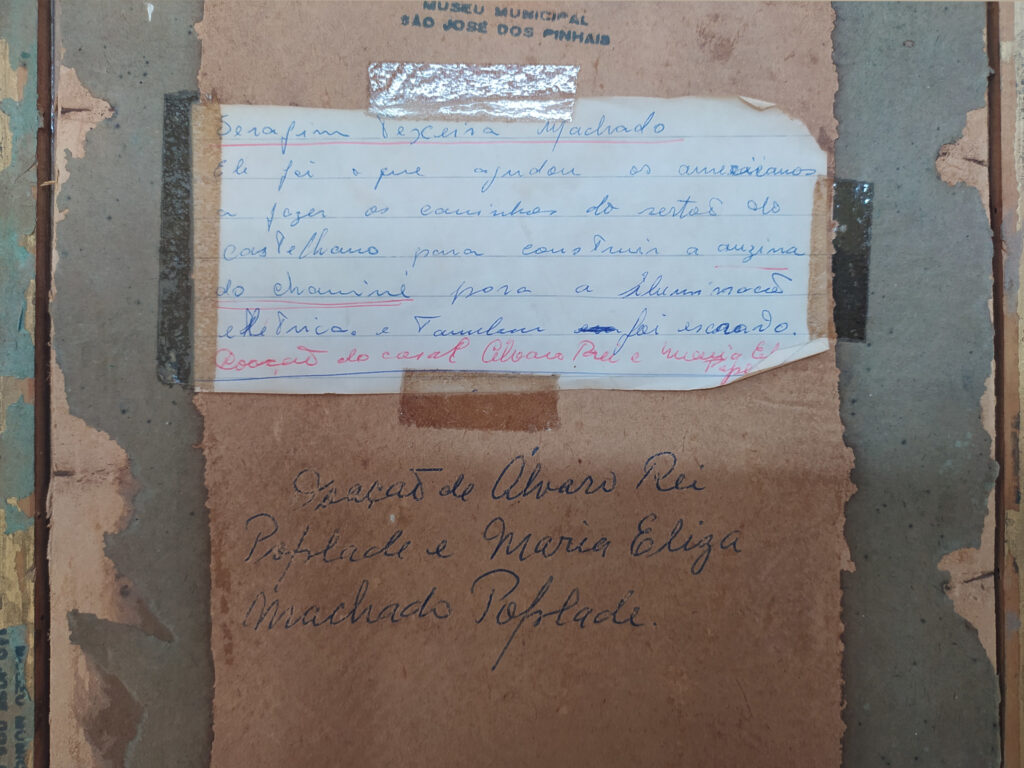 MUSEU MUNICIPAL
SÃO JOSÉ DOS PINHAIS
Serafim Texeira Machado
Ele foi o que ajudou os americanos
a fazer os caminhos do sertão do
castelhano para construir a auzina
do chaminé para a iluminação
eletrica. e Tambem foi escravo.
Doação do casal Alvaro Rei e Maria El
Doação de Álvaro Rei
Poplade e Maria Eliza
Machado Poplade.